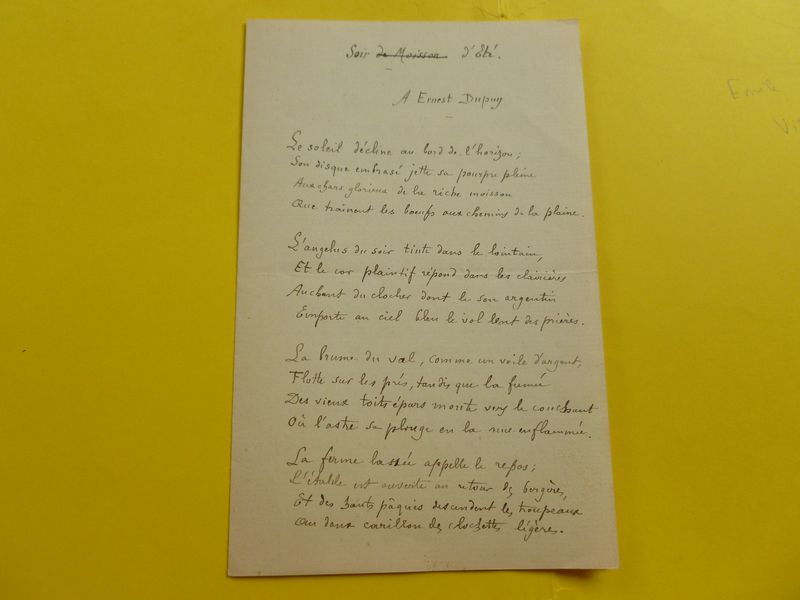 Soir de Moisson d'Eté.
A Ernest Dupuy
Le soleil décline au bord de l'horizon;
Son disque embrasé jette sa pourpre pleine
Aux chars glorieux de la riche moisson
Que traînent les boeufs aux chemins de la plaine.
L'angelus du soir tinte dans le lointain,
Et le cor plaintif répond dans les clairières
Au chant du clocher dont le son argentin
Emporte au ciel bleu le vol lent des prières.
La brume du val, comme un voile d'argent,
Flotte sur les prés, tandis que la fumée
Des vieux toits épars monte vers le couchant
Où l'astre se plonge en la nue enflammée.
La ferme lassée appelle le repos;
L'étable est ouverte au retour des bergères,
Et des hauts pâquis descendent les troupeaux
Au doux carillon des clochettes légères.